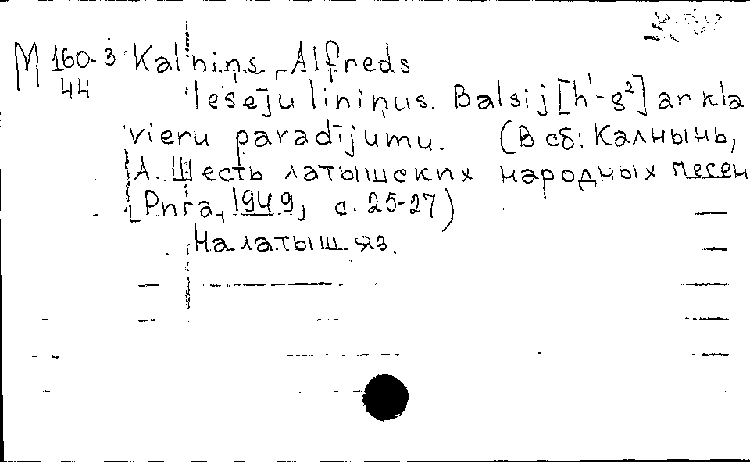 M 160-3 Kalniņs, Alfreds
44 Iesēju liniņus. Balsij [h¹-g²] ar kla
vieru paradījumu. (В сб: Калнынь,
А. Шесть латышских народных песен
Рига, 1949, с. 25-27)
На латыш. яз.